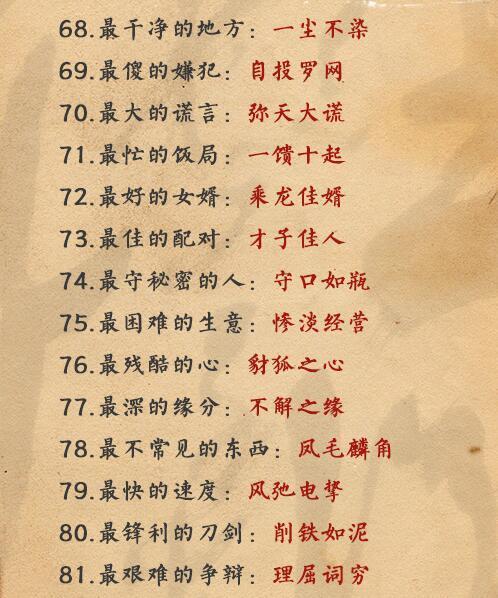 68.最干净的地方：一尘不染
69.最傻的嫌犯：自投罗网
70.最大的谎言：弥天大谎
71.最忙的饭局：一馈十起
72.最好的女婿：乘龙佳婿
73.最佳的配对：才子佳人
74.最守秘密的人：守口如瓶
75.最困难的生意：惨淡经营
76.最残酷的心：豺狐之心
77.最深的缘分：不解之缘
78.最不常见的东西：凤毛麟角
79.最快的速度：风弛电挚
80.最锋利的刀剑：削铁如泥
81.最艰难的争辩：理屈词穷